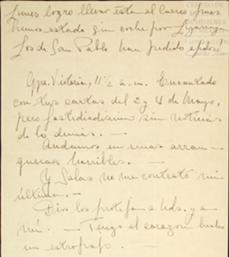 Lunes logro llevar ésta al correo pues
hemos estado sin coche por
los de San Pablo han pedido
Gpe. Victoria, 11½ a.m. Encantado
con tus cartas del 2 y 4 de Mayo,
pero fastidiadísimo sin noticias
de lo demás. —
Andamos en unas
horribles. —
Y Salas no me contestó mi
último. —
Dios los proteja a Uds. y a
mí. — Tengo el corazón hecho
un estropajo. —